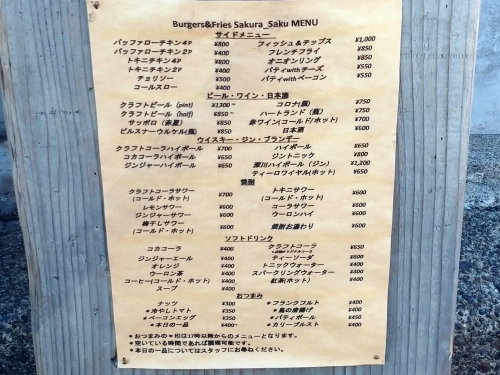 Burgers&Fries Sakura_Saku MENU
サイドメニュー
バッファローチキン４P ¥800 フィッシュ＆チップス ¥1,000
バッファローチキン２P ¥400 フレンチフライ ¥850
トキニチキン４P ¥800 オニオンリング ¥850
トキニチキン２P ¥400 パティwithチーズ ¥550
チョリソー ¥500 パティwithベーコン ¥550
コールスロー ¥400
ビール・ワイン・日本酒
クラフトビール（pint） ¥1300～ コロナ(瓶) ¥750
クラフトビール（half） ¥850～ ハートランド（瓶） ¥750
サッポロ（赤星） ¥850 赤ワイン(コールド/ホット) ¥700
ピルスナーウルケル(瓶) ¥850 日本酒 ¥600
ウイスキー・ジン・ブランデー
クラフトコーラハイボール ¥700 ハイボール ¥650
コカコーラハイボール ¥650 ジントニック ¥800
ジンジャーハイボール ¥650 深川ハイボール（ジン） ¥1,200
ティーロワイヤル(ホット) ¥650
焼酎
クラフトコーラサワー ¥700 トキニサワー ¥600
(コールド・ホット) (コールド・ホット)
レモンサワー ¥600 コーラサワー ¥600
ジンジャーサワー ¥600 ウーロンハイ ¥600
梅干しサワー ¥600 焼酎お湯わり ¥600
(コールド・ホット)
ソフトドリンク
コカコーラ ¥400 クラフトコーラ ¥650
ジンジャーエール ¥400 ティーソーダ ¥600
オレンジ ¥400 トニックウォーター ¥400
ウーロン茶 ¥400 スパークリングウォーター ¥400
コーヒー(コールド・ホット) ¥400 紅茶(ホット) ¥400
スープ ¥400
おつまみ
ナッツ ¥300 ＊フランクフルト ¥400
＊冷やしトマト ¥350 ＊鳥の唐揚げ ¥400
＊ベーコンエッグ ¥350 ＊パティボール ¥450
＊本日の一品 ¥400~ ＊カリーブルスト ¥400
＊おつまみの＊印は17時以降からのメニューとなります。
＊空いている時間であれば調理可能です。
＊本日の一品についてはスタッフにお尋ねください。